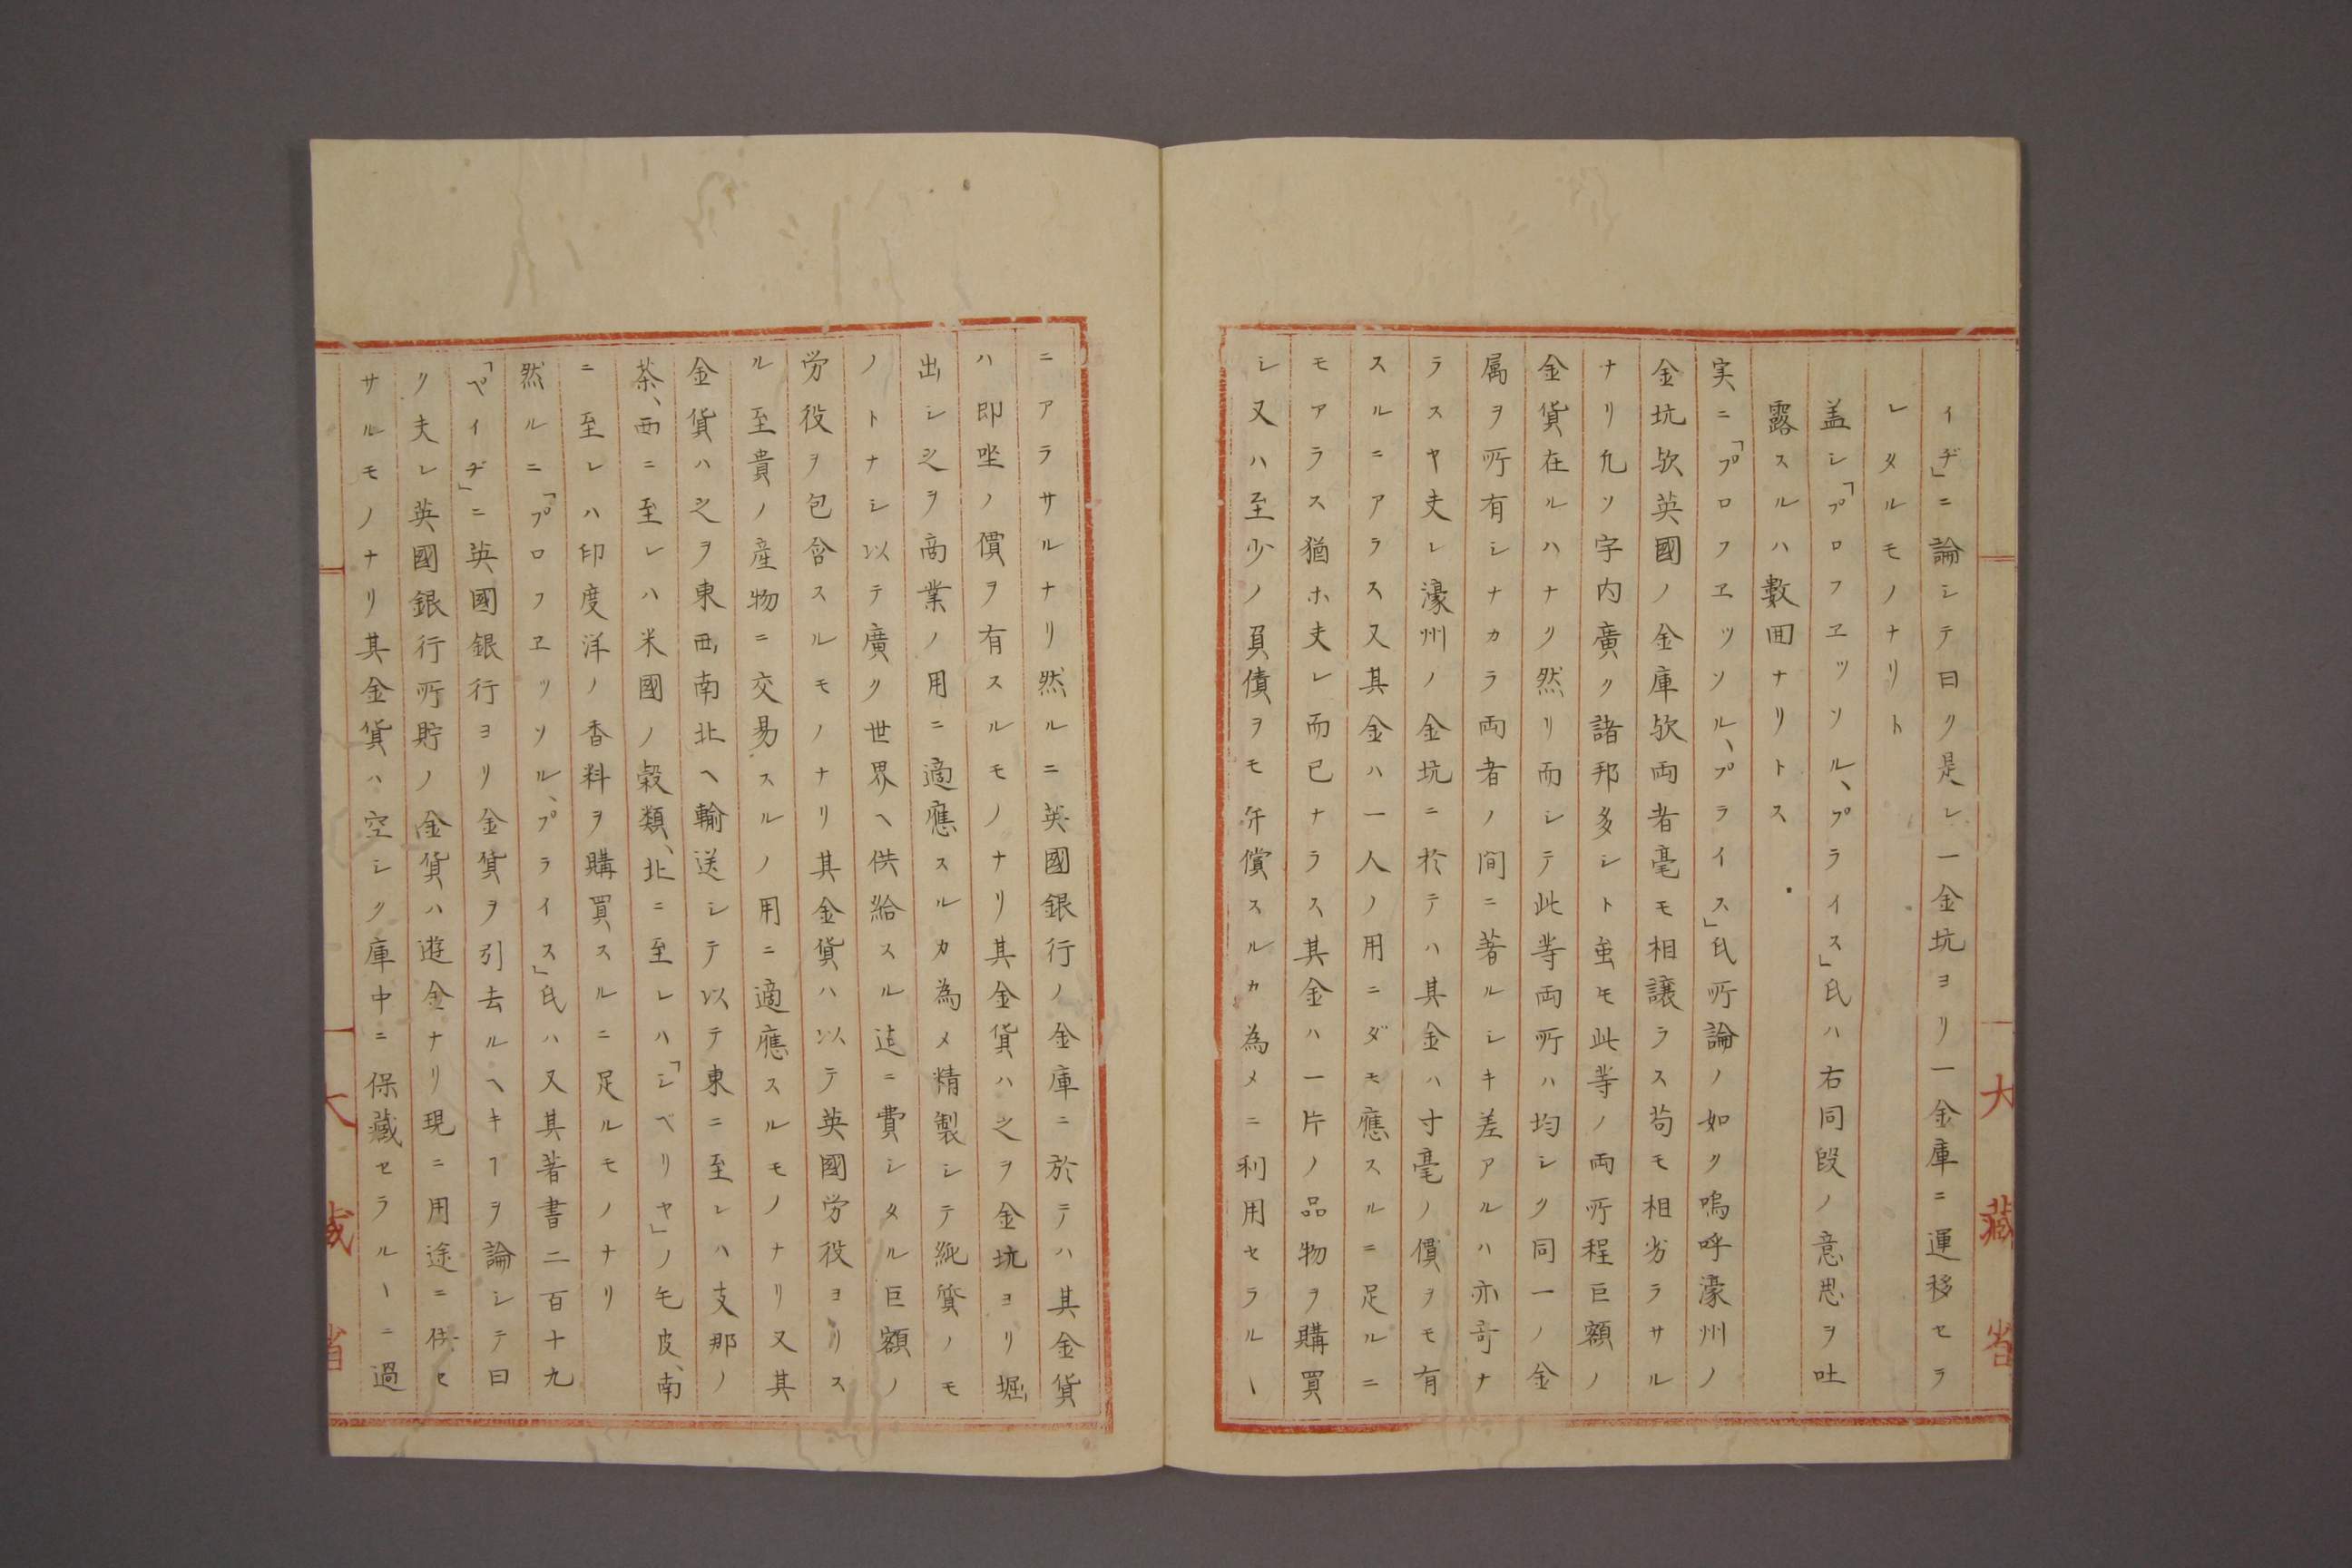 イヂ」ニ論シテ曰ク是レ一金坑ヨリ一金庫ニ運移セラ
レタルモノナリト
蓋シ「プロフヱッソル、プライス」氏ハ右同段ノ意思ヲ吐
露スルハ數囬ナリトス
実ニ「プロフヱッソル、プライス」氏所論ノ如ク嗚呼濠州ノ
金坑欤英國ノ金庫欤両者毫モ相讓ラス苟モ相劣ラサル
ナリ九ソ宇内廣ク諸邦多シト虽モ此等ノ両所程巨額ノ
金貨在ルハナク然リ而シテ此等両所ハ均シク同一ノ金
属ヲ所有シナカラ両者ノ間ニ著ルシキ差アルハ亦奇ナ
ラスヤ夫レ濠州ノ金坑ニ於テハ其金ハ寸毫ノ價ヲモ有
スルニアラス又其金ハ一人ノ用ニダモ應スルニ足ルニ
モアラス猶ホ夫レ而已ナラス其金ハ一片ノ品物ヲ購買
シ又ハ至少ノ負債ヲモ弁償スルカ為メニ利用セラルヽ
ニアラサルナリ然ルニ英國銀行ノ金庫ニ於テハ其金貨
ハ即坐ノ價ヲ有スルモノナリ其金貨ハ之ヲ金坑ヨリ堀
出シ之ヲ商業ノ用ニ適應スルカ為メ精製シテ純質ノモ
ノトナシ以テ廣ク世界ヘ供給スル迠ニ費シタル巨額ノ
労役ヲ包含スルモノナリ其金貨ハ以テ英國労役ヨリス
ル至貴ノ産物ニ交易スルノ用ニ適應スルモノナリ又其
金貨ハ之ヲ東西南北ヘ輸送シテ以テ東ニ至レハ支那ノ
茶、西ニ至レハ米國ノ穀類、北ニ至レハ「シベリヤ」ノ毛皮、南
ニ至レハ印度洋ノ香料ヲ購買スルニ足ルモノナリ
然ルニ「プロフヱッソル、プライス」氏ハ又其著書二百十九
「ペイヂ」ニ英國銀行ヨリ金貨ヲ引去ルヘキヿヲ論シテ曰
ク夫レ英國銀行所貯ノ金貨ハ遊金ナリ現ニ用途ニ供セ
サルモノナリ其金貨ハ空シク庫中ニ保藏セラルヽニ過
大藏省
大藏省